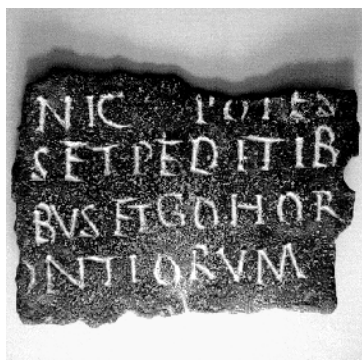 NIC POTES
S ET PEDITIB
BVS ET COHOR
ONTIORVM